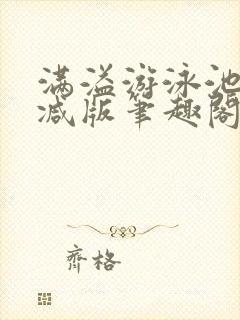 满溢游泳池
减版笔趣阁
齊格